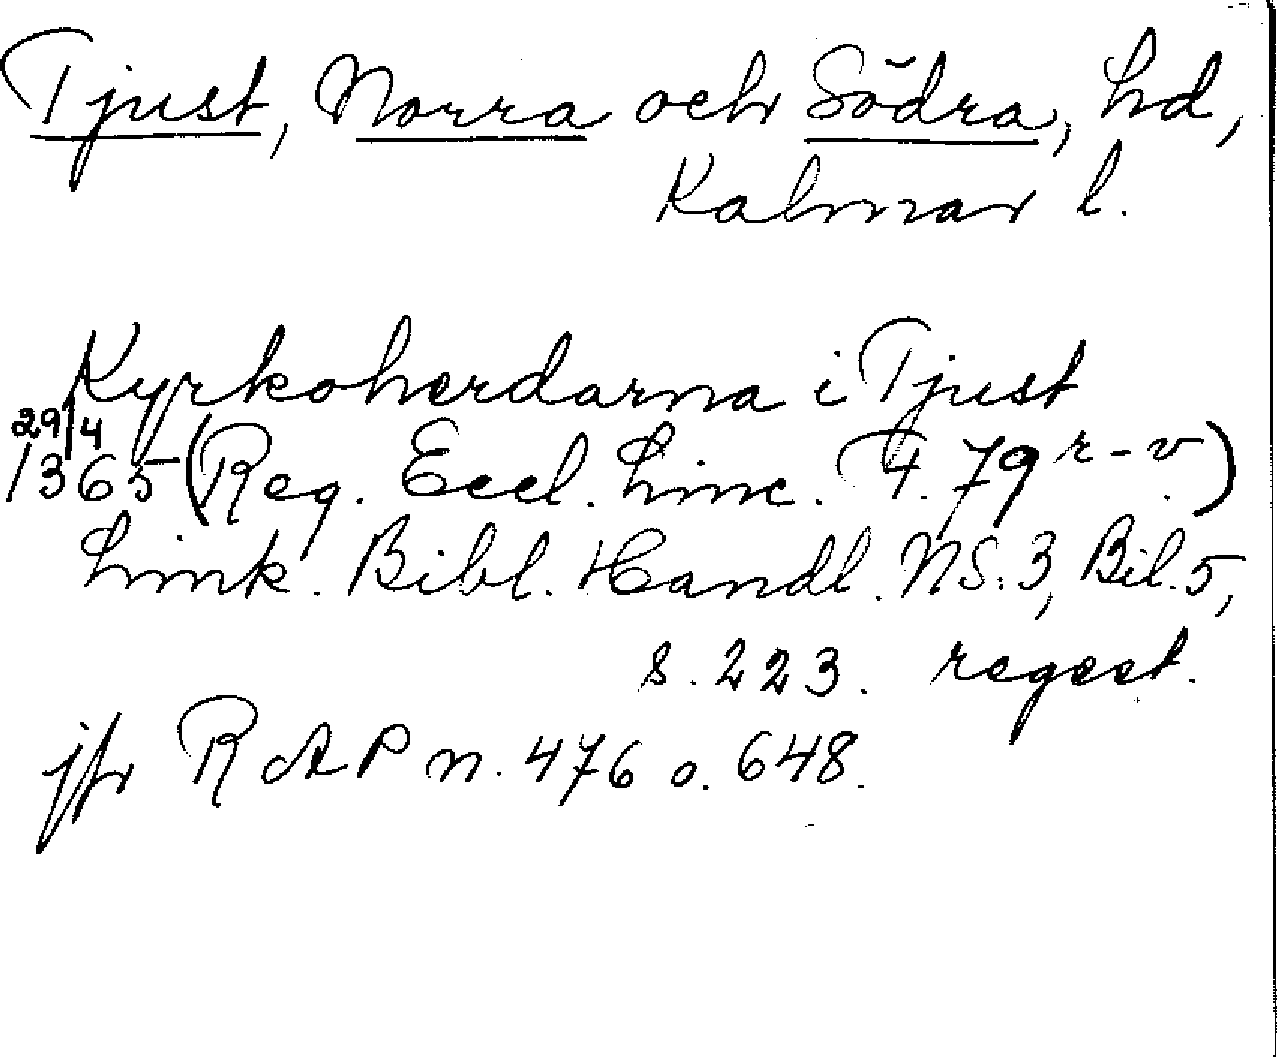 Tjust, Norra och Södra, hd,
Kalmar l.
Kyrkoherdarna i Tjust
29/4
1365 (Reg. Eccl. Linc. F. 79 r-v.)
Link. Bibl. Handl. NS. 3, Bil. 5,
s. 223. regest.
jfr RAP n. 476 o. 648.